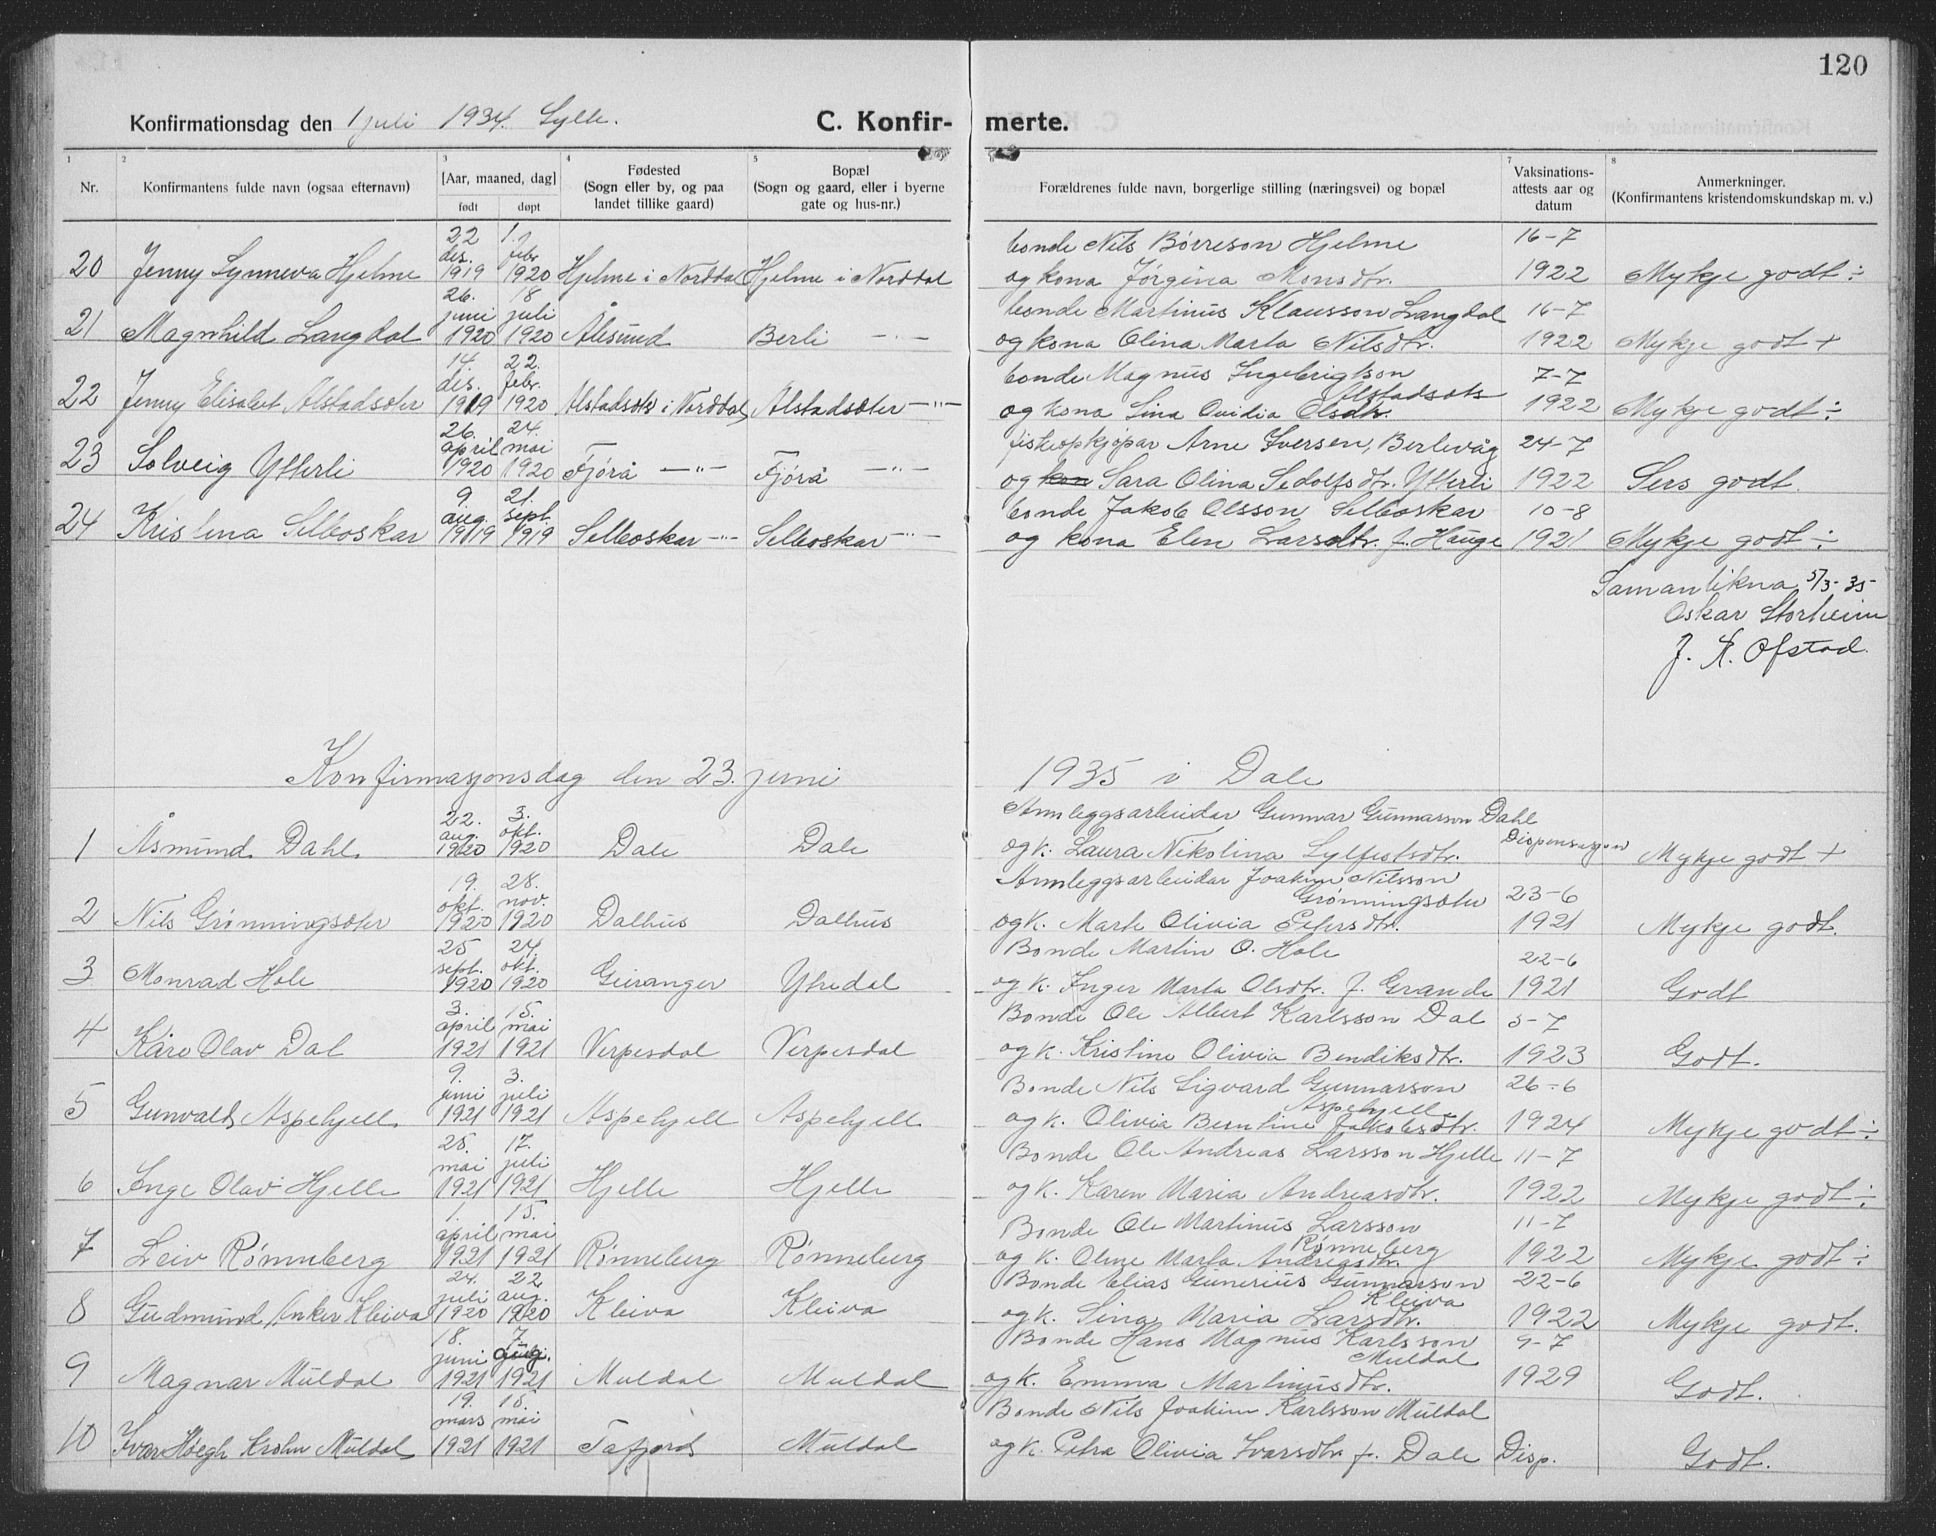 120
Konfirmationsdag den 1 juli 1934. Sylte. C. Konfirmerte.
1 2 3 4 5 7 8
Nr. Konfirmantens fulde navn (ogsaa efternavn) [Aar, maaned, dag] født døpt Fødested (Sogn eller by, og paa landet tillike gaard) Bopæl (Sogn og gaard, eller i byerne gate og hus-nr.) Forældrenes fulde navn, borgerlige stilling (næringsvei) og bopæl Vaksinations-attests aar og datum Anmerkninger. (Konfirmantens kristendomskundskap m. v.)
22 des. 1. febr. bonde Nils Børreson Hjelme 16-7
20 Jenny Synneva Hjelme 1919 1920 Hjelme i Norddal Hjelme i Norddal og kona Jørgina Monsdtr. 1922 Mykje godt ÷
26. juni 18 juli bonde Martinus Klausson Langdal 16-7
21 Magnhild Langdal 1920 1920 Ålesund Berli -"- og kona Olina Marta Nilsdtr. 1922 Mykje godt +
14. des. 22. febr. bonde Magnus Ingebrigtson Alstadsæt 7-7
22 Jenny Elisabet Alstadsæter 1919 1920 Alstadsæt i Norddal Alstadsæter -"- og kona Lina Ovidia Olsdtr. 1922 Mykje godt ÷
26. april 24. mai fiskeopkjøpar Arne Iversen, Berlevåg 24-7
23 Solveig Ytterli 1920 1920 Fjørå -"- Fjørå -"- og kon Sara Olina Sedolfsdtr. Ytterli 1922 Sers godt.
9. aug. 21. sept. bonde Jakob Olsson Selboskar 10-8
24 Kristina Selboskar 1919 1919 Selboskar -"- Selboskar -"- og kona Elen Larsdtr. f. Hauge 1921 Mykje godt ÷
Samanlikna 5/3-35
Oskar Storheim
J. K. Ofstad.
Konfirmasjonsdag den 23. juni 1935 i Dale
22. aug. 3. okt. Anleggsarbeidar Gunnar Gunnarson Dahl
1 Åsmund Dahl 1920 1920 Dale Dale og k. Laura Nikolina Sylfestsdtr. Dispensasjon Mykje godt +
19. okt. 28. nov. Anleggsarbeidar Joakim Nilsson Grønningsæter 23-6
2 Nils Grønningsæter 1920 1920 Dalhus Dalhus og k. Marte Olivia Petersdtr. 1921 Mykje godt.
25 sept. 24. okt. Bonde Martin O. Hole 22-6
3 Monrad Hole 1920 1920 Geiranger Ytredal og k. Inger Marta Olsdtr. f. Grande 1921 Godt
3. april 15. mai Bonde Ole Albert Karlsson Dal 5-7
4 Kåre Olav Dal 1921 1921 Verpesdal Verpesdal og k. Kristine Olivia Bendiksdtr. 1923 Godt.
9. juni 3. juli Bonde Nils Sigvard Gunnarson Aspehjell 26-6
5 Gunvald Aspehjell 1921 1921 Aspehjell Aspehjell og k. Olivia Berntine Jakobsdtr. 1924 Mykje godt ÷
25. mai 17. juli Bonde Ole Andreas Larsson Hjelle 11-7
6 Inge Olav Hjelle 1921 1921 Hjelle Hjelle og k. Karen Maria Andreasdtr. 1922 Mykje godt ÷
1. april 15. mai Bonde Ole Martinus Larsson Rønneberg 11-7
7 Leiv Rønneberg 1921 1921 Rønneberg Rønneberg og k. Oline Marta Andreasdtr. 1922 Mykje godt ÷
24. juli 22 aug. Bonde Elias Gunerius Gunnarson Kleiva 22-6
8 Gudmund Anker Kleiva 1920 1920 Kleiva Kleiva og k. Lina Maria Larsdtr. 1922 Mykje godt.
18. juni 7. Bonde Hans Magnus Karlsson Muldal 9-7
9 Magnar Muldal 1921 1921 Muldal Muldal og k. Emma Martinusdtr. 1929 Godt.
19. mars 15. mai Bonde Nils Joakim Karlsson Muldal
10 Ivar Høegh Krohn Muldal 1921 1921 Tafjord Muldal og k. Petra Olivia Ivarsdtr f. Dale Disp. Godt.